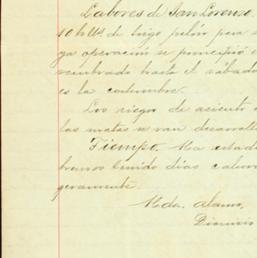 Labores de San Lorenzo.
de trigo pelón para
ya operación se principió
sembrado hasta el sábado
es la costumbre.
Los riegos de asiento
las matas se van desarroll
Tiempo. Ha estado
hemos tenido días calur
geramente.
Hda. Alamo,